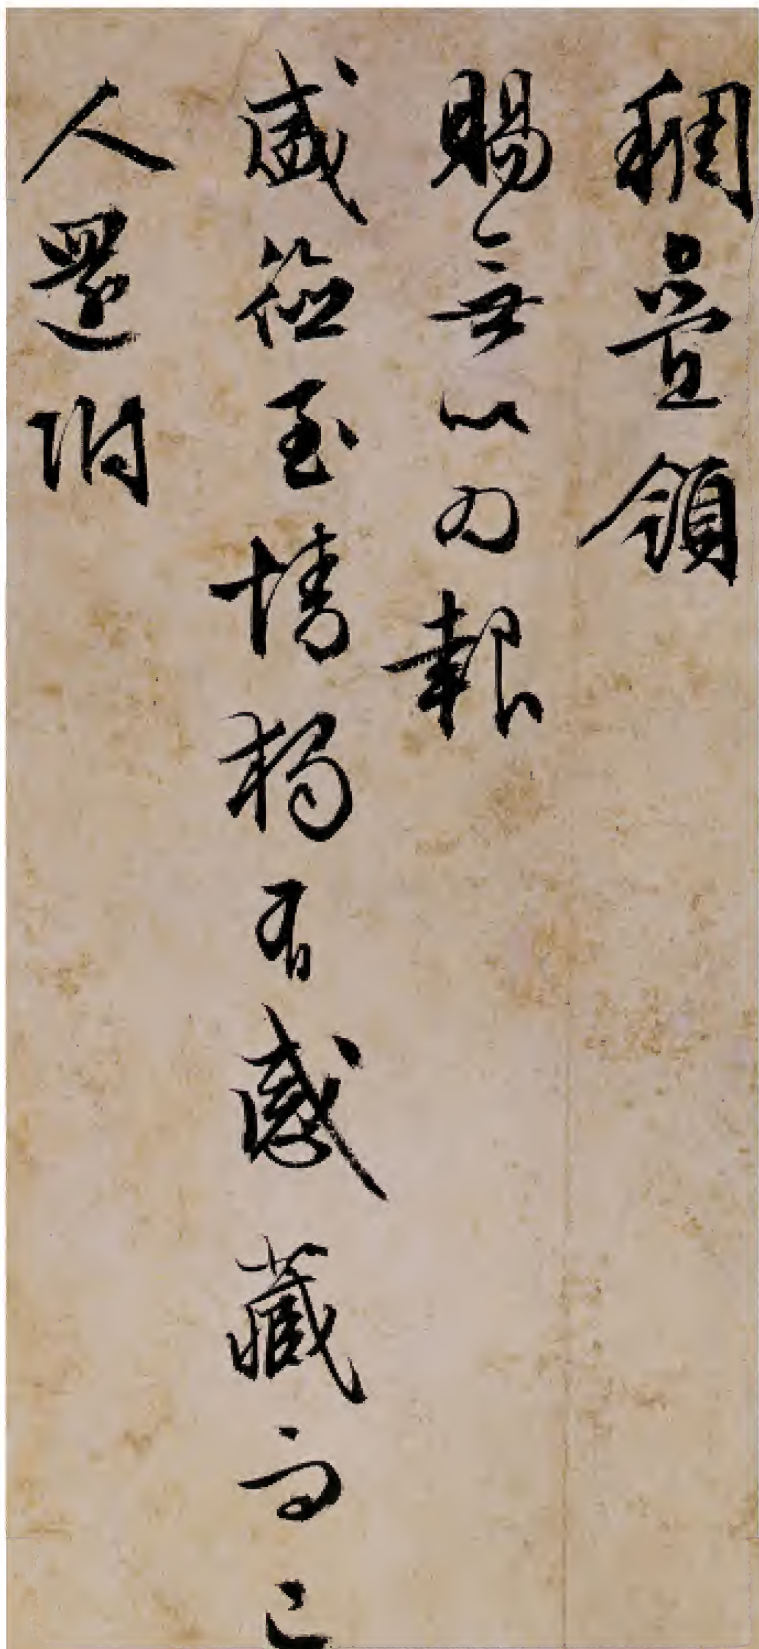 稠疊領
賜無以為報
盛蒞至情獨有感藏而已
人還附